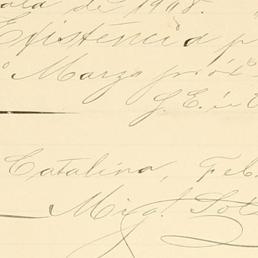 de 1908.
Existencia p
Marzo próx
S. E. ú O
Catalina, Feb
Mig. Soto